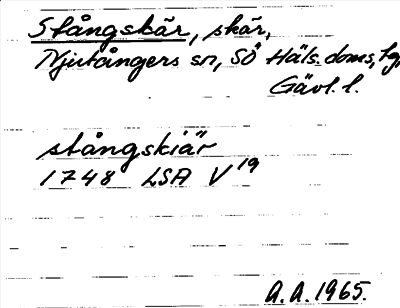 Stångskär, skär,
Njutångers sn, SÖ Häls. doms, tg,
Gävl. l.
stångskiär
1748 LSA V 19
A.A. 1965.